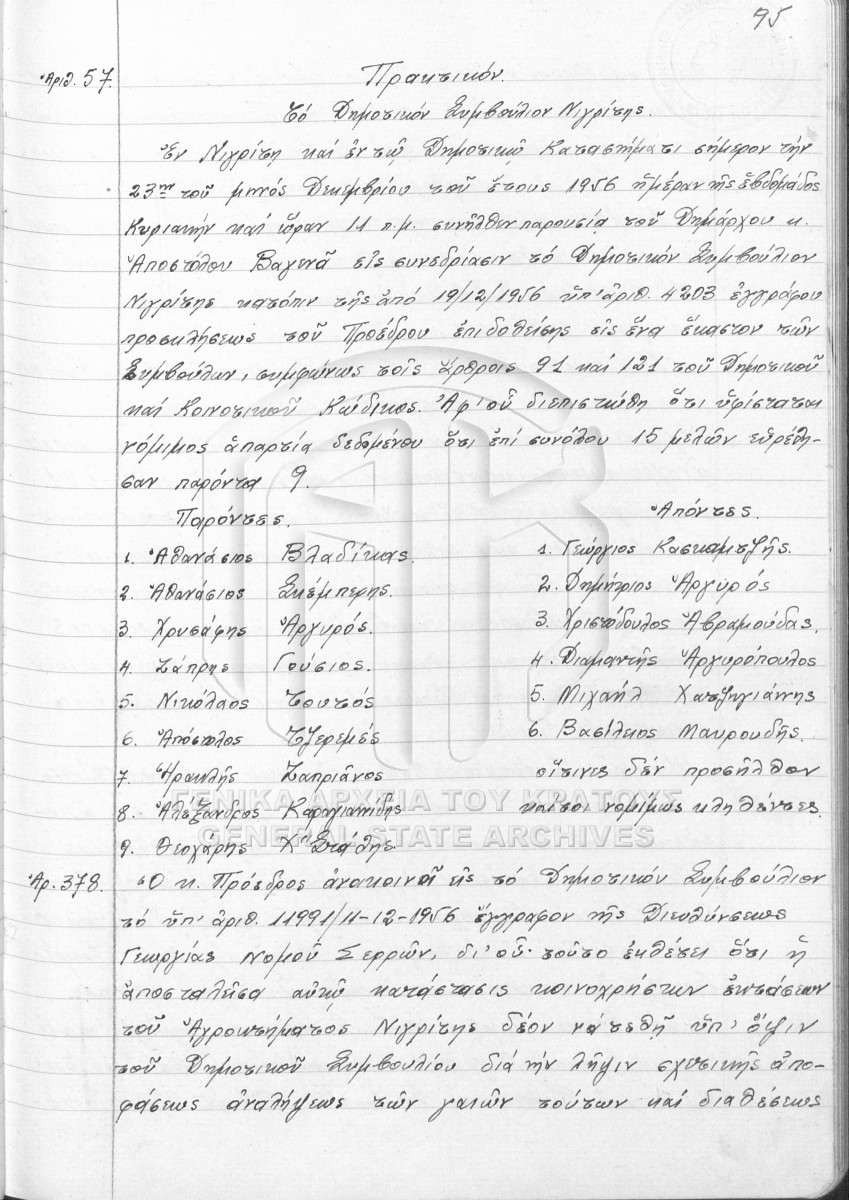 95
Ἀριθ. 57.
Πρακτικόν.
Τό Δημοτικόν Συμβούλιον Νιγρίτης.
Ἐν Νιγρίτῃ καί ἐν τῷ Δημοτικῷ Καταστήματι σήμερον τήν
23ην τοῦ μηνός Δεκεμβρίου τοῦ ἔτους 1956 ἡμέραν τῆς ἑβδομάδος
Κυριακήν καί ὥραν 11 π.μ. συνῆλθεν παρουσίᾳ τοῦ Δημάρχου κ.
Ἀποστόλου Βαγενᾶ εἰς συνεδρίασιν τό Δημοτικόν Συμβούλιον
Νιγρίτης κατόπιν τῆς ἀπό 19/12/1956 ὑπ' ἀριθ. 4203 ἐγγράφου
προσκλήσεως τοῦ Προέδρου ἐπιδοθείσης εἰς ἕνα ἕκαστον τῶν
Συμβούλων, συμφώνως τοῖς ἄρθροις 91 καί 121 τοῦ Δημοτικοῦ
καί Κοινοτικοῦ Κώδικος. Ἀφ' οὗ διεπιστώθη ὅτι ὑφίσταται
νόμιμος ἀπαρτία δεδομένου ὅτι ἐπί συνόλου 15 μελῶν εὑρέθη-
σαν παρόντα 9.
Παρόντες.
1. Ἀθανάσιος Βλαδίκας.
2. Ἀθανάσιος Σκέμπερης.
3. Χρυσάφης Ἀργυρός.
4. Ζάπρης Γούσιος.
5. Νικόλαος Τουτός
6. Ἀπόστολος Τζερεμές
7. Ἡρακλῆς Ζαπριάνος
8. Ἀλέξανδρος Καραγιαννίδης
9. Θεοχάρης Χ"Στάθης.
Ἀπόντες.
1. Γεώργιος Κασκαμτζῆς.
2. Δημήτριος Ἀργυρός
3. Χριστόδουλος Ἀβραμούδας.
4. Διαμαντῆς Ἀργυρόπουλος
5. Μιχαήλ Χατζηγιάννης
6. Βασίλειος Μαυρουδῆς.
οἵτινες δέν προσῆλθον
καίτοι νομίμως κληθέντες.
Ἀρ. 378.
Ὁ κ. Πρόεδρος ἀνακοινοῖ εἰς τό Δημοτικόν Συμβούλιον
τό ὑπ' ἀριθ. 11991/11-12-1956 ἔγγραφον τῆς Διευθύνσεως
Γεωργίας Νομοῦ Σερρῶν, δι' οὗ τοῦτο ἐκθέτει ὅτι ἡ
ἀποσταλεῖσα αὐτῷ κατάστασις κοινοχρήστων ἐκτάσεων
τοῦ Ἀγροκτήματος Νιγρίτης δέον νά τεθῇ ὑπ' ὄψιν
τοῦ Δημοτικοῦ Συμβουλίου διά τήν λῆψιν σχετικῆς ἀπο-
φάσεως ἀναλήψεως τῶν γαιῶν τούτων καί διαθέσεως
ΓΕΝΙΚΑ ΑΡΧΕΙΑ ΤΟΥ ΚΡΑΤΟΥΣ
GENERAL STATE ARCHIVES